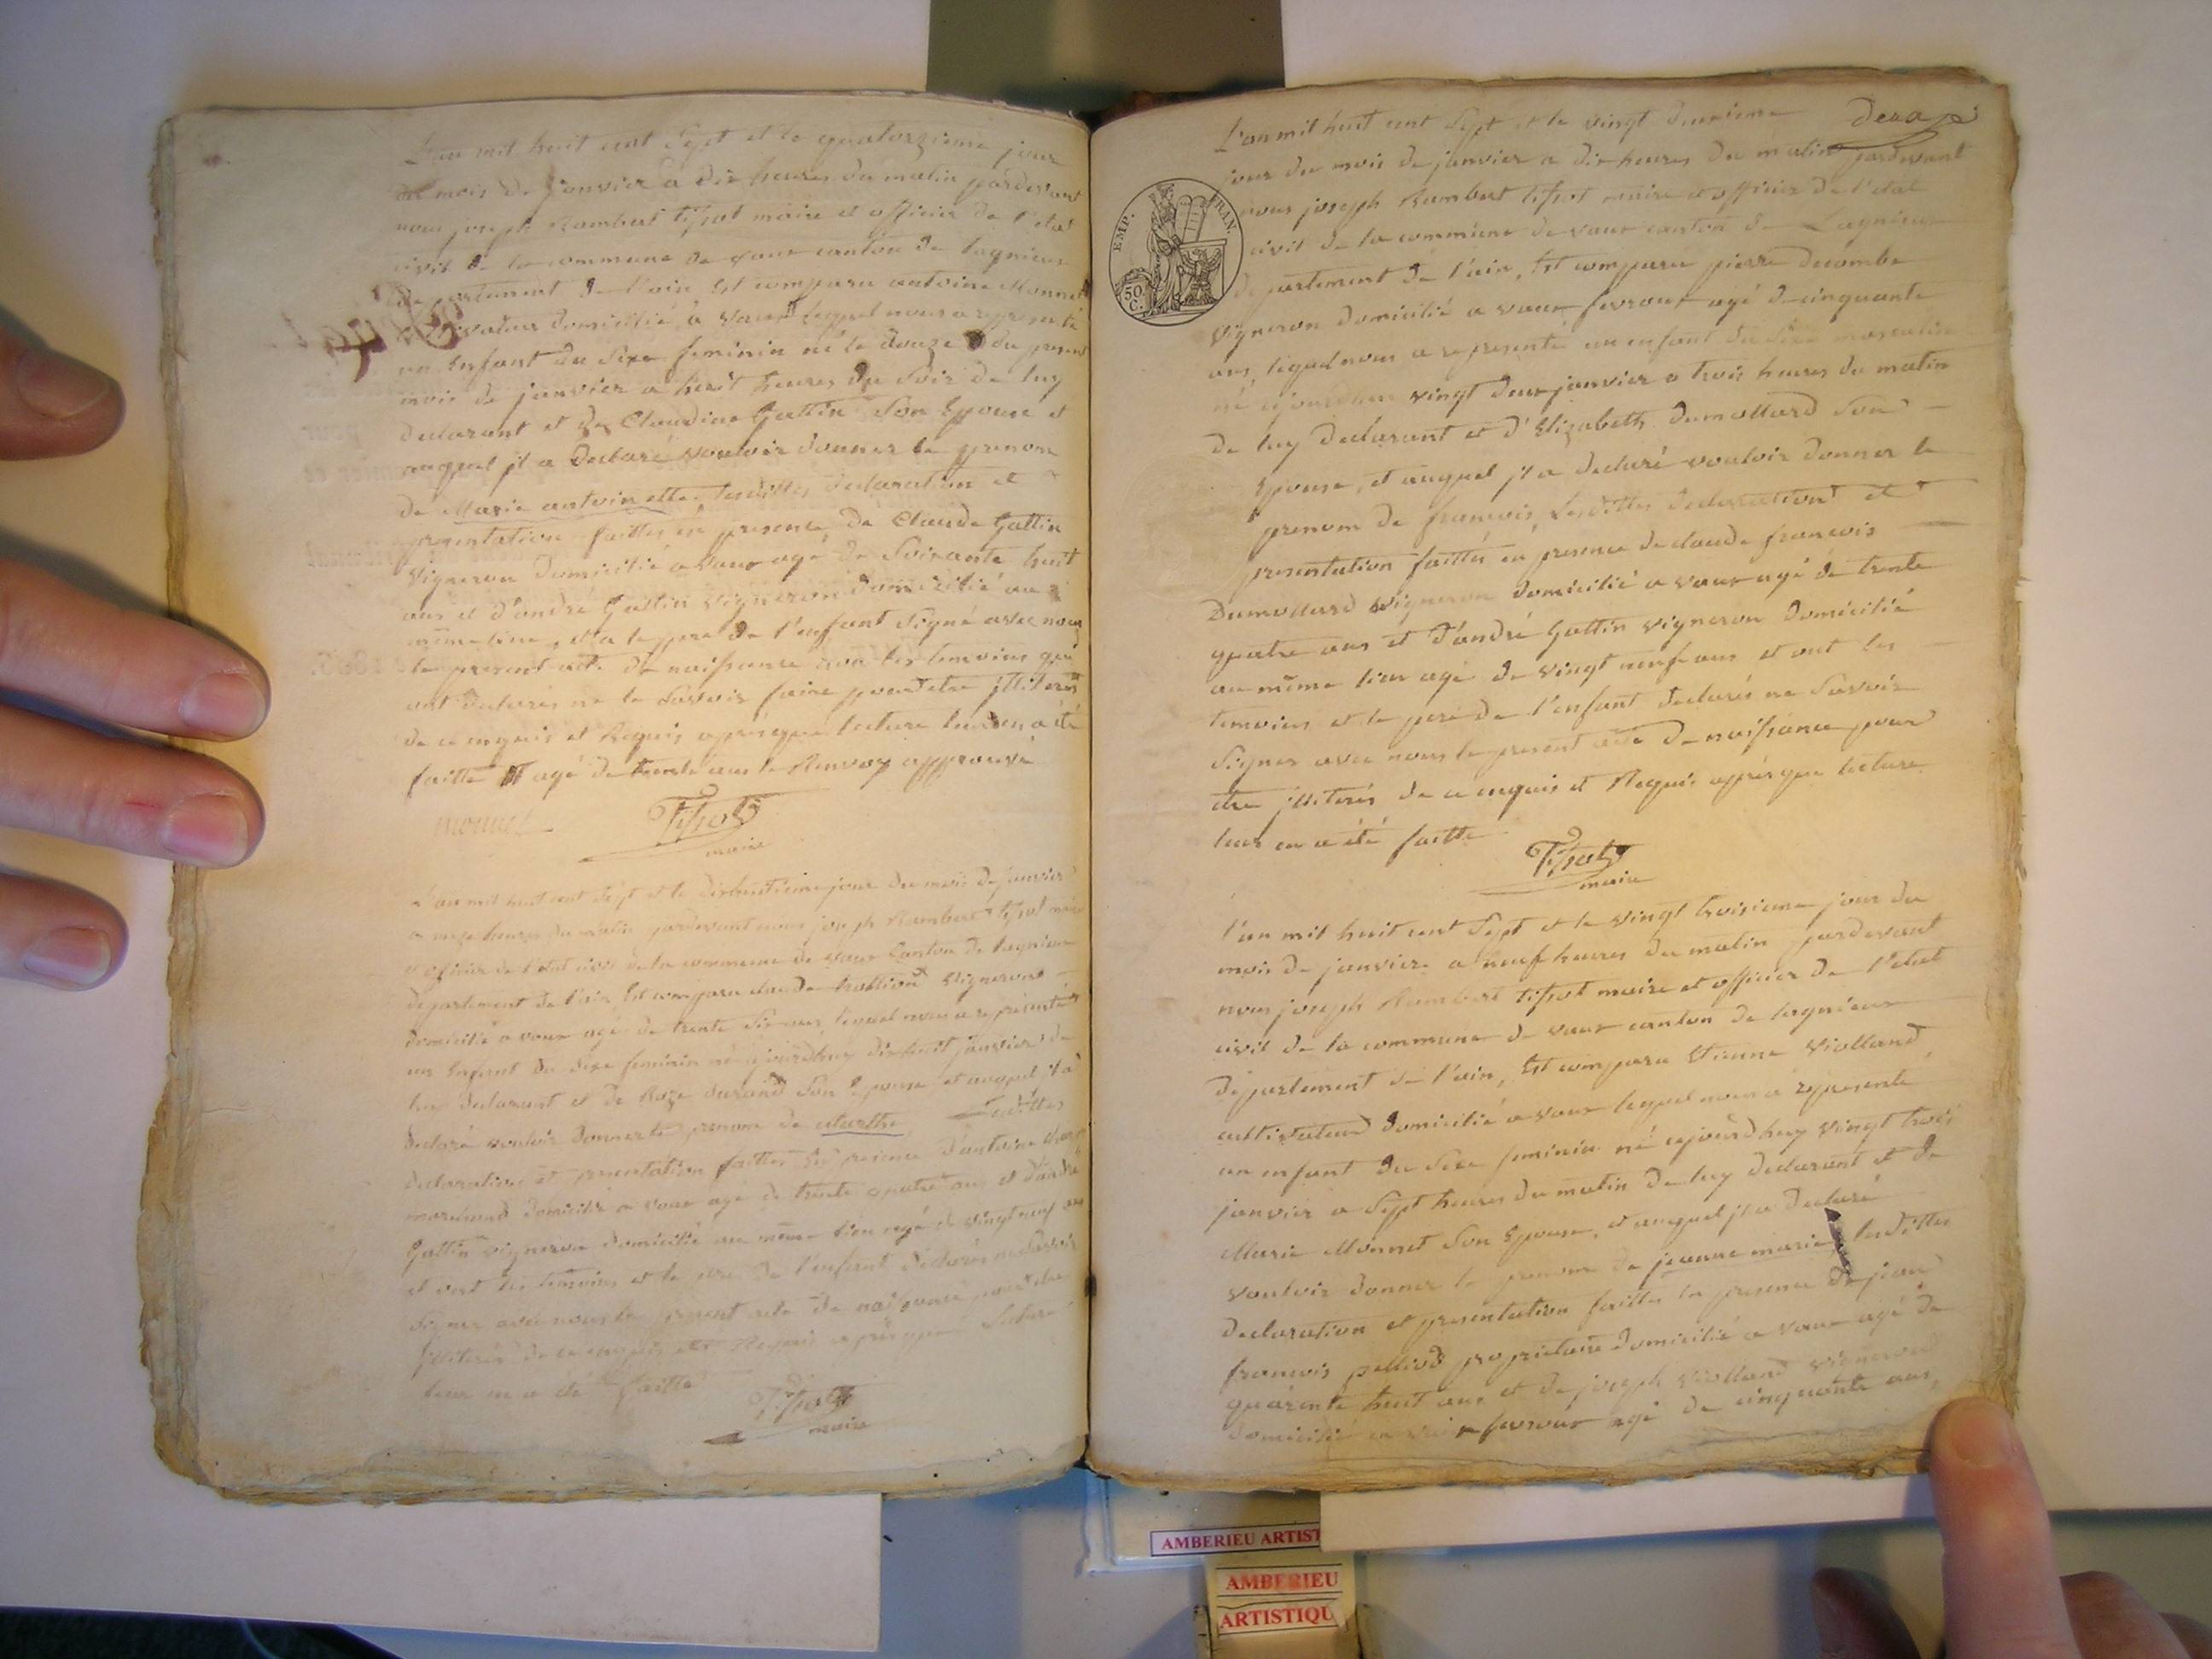 L'an mil huit cent Sept et le quatorzieme jour
du mois de janvier a dix heures du matin pardevant
nous joseph Rambert tissot maire et officier de l'etat
civil de la commune de vaux canton de lagnieux
departement de l'ain Est comparu antoine Monnet
domicilié a vaux lequel nous a representé
un Enfant du Sexe feminin né le douze du present
mois de janvier a huit heures du Soir de luy
declarant et de Claudine Gattin Son Epouse et
auquel jl a declaré vouloir donner le prenom
de Marie antoinette lesdittes declaration et
presentation faittes en presence de Claude Gattin
vigneron domicilié a vaux agé de Soixante huit
ans et d'andré Gattin vigneron domicilié au
même lieu, et a le pere de l'enfant Signé avec nous
le present acte de naissance non les temoins qui
ont declarés ne le Savoir faire pour etre jlliterés
de ce enquis et Requis après que lecture leur en a été
faitte agé de trente ans le Renvoy approuvé
monnet Tissot
maire
L'an mil huit cent Sept et le dixhuitieme jour du mois de janvier
a onze heures du matin pardevant nous joseph Rambert tissot maire
et officier de l'etat civil de la commune de vaux Canton de lagnieux
departement de l'ain Est comparu claude vigneron
domicilié a vaux agé de trente Six ans, lequel nous a representé
un Enfant du Sexe feminin né ajourdhuy dixhuit janvier de
luy declarant et de Roze durand Son Epouse et auquel jl a
declaré vouloir donner le prenom de Marthe Lesdittes
declaration et presentation faittes En presence d'antoine
marchand domicilié a vaux agé de trente quatre ans et d'andré
Gattin vigneron domicilié au même lieu agé de vingt neuf ans
et ont les temoins et le pere de l'enfant declarés ne Savoir
Signer avec nous le present acte de naissance pour etre
jlliterés de ce enquis et Requis après que lecture
leur en a été faitte
Tissot
maire
deux
L'an mil huit cent Sept et le vingt deuxieme
jour du mois de janvier a dix heures du matin pardevant
nous joseph Rambert tissot maire et officier de l'etat
civil de la commune de vaux canton de Lagnieux
departement de l'ain, Est comparu pierre decombe
vigneron domicilié a vaux fevroux agé de cinquante
ans, lequel nous a representé un enfant du Sexe masculin
né ajourdhuy vingt deux janvier a trois heures du matin
de luy declarant et d'Elizabeth dumollard Son
Epouse, et auquel jl a declaré vouloir donner le
prenom de francois, Lesdittes declaration et
presentation faittes en presence de claude francois
Dumollard vigneron domicilié a vaux agé de trente
quatre ans et d'andré Gattin vigneron domicilié
au même lieu agé de vingt neuf ans et ont les
temoins et le pere de l'enfant declarés ne Savoir
Signer avec nous le present acte de naissance pour
etre jlliterés de ce enquis et Requis après que lecture
leur en a été faitte
Tissot
maire
EMP. FRAN.
50 C.
L'an mil huit cent Sept et le vingt troisieme jour du
mois de janvier a neuf heures du matin pardevant
nous joseph Rambert tissot maire et officier de l'etat
civil de la commune de vaux canton de lagnieux
departement de l'ain, Est comparu Etienne Violland
cultivateur domicilié a vaux lequel nous a representé
un enfant du Sexe feminin né ajourdhuy vingt trois
janvier a Sept heures du matin de luy declarant et de
Marie Monnet Son Epouse, et auquel jl a declaré
vouloir donner le prenom de jeanne marie, lesdittes
declaration et presentation faittes En presence de jean
francois pelliod proprietaire domicilié a vaux agé de
quarente huit ans et de joseph Violland vigneron
domicilié a vaux fevroux agé de cinquante ans,
AMBERIEU ARTIST
AMBERIEU
ARTISTIQU